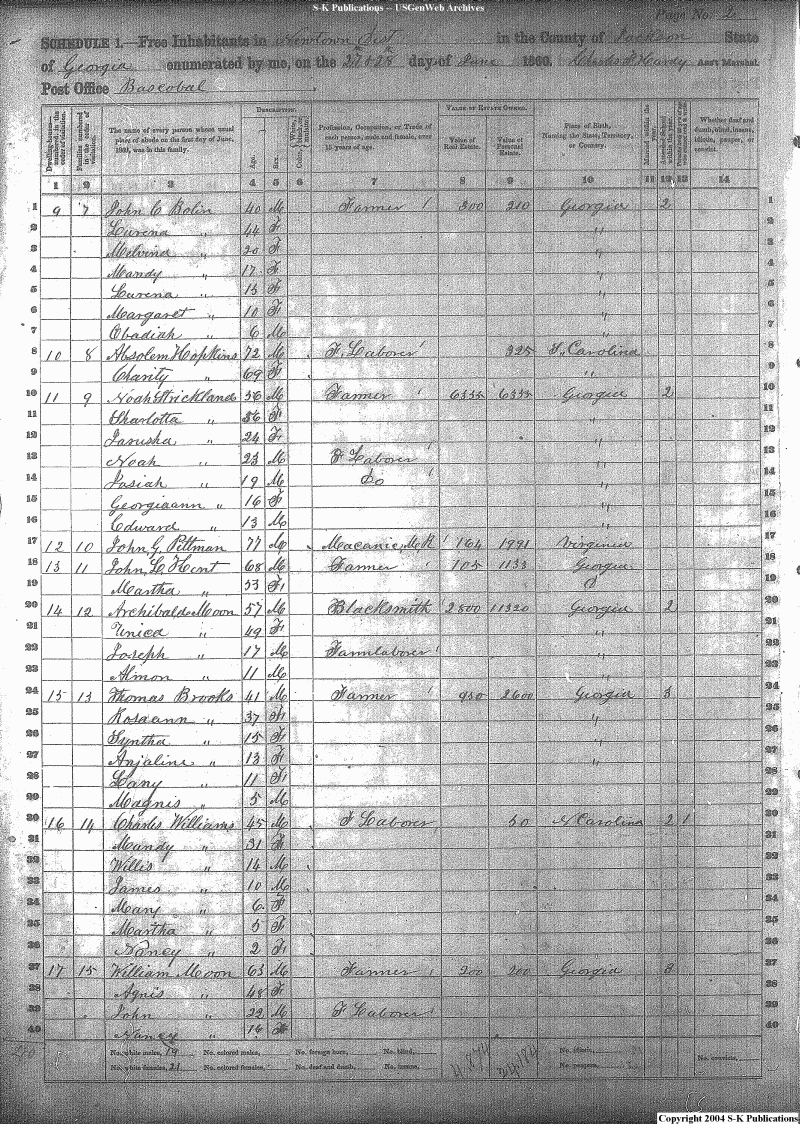 S-K Publications – USGenWeb Archives
Page No. 2
SCHEDULE 1.—Free Inhabitants in Newtown Dist in the County of Jackson State
of Georgia enumerated by me, on the 27 & 28 day of June 1860. Hardy Ass't Marshal.
Post Office
Dwelling-houses numbered in the order of visitation.
Families numbered in the order of visitation.
The name of every person whose usual place of abode on the first day of June, 1860, was in this family.
DESCRIPTION.
Age.
Sex.
Color, White, black, or mulatto.
Profession, Occupation, or Trade of each person, male and female, over 15 years of age.
VALUE OF ESTATE OWNED.
Value of Real Estate.
Value of Personal Estate.
Place of Birth, Naming the State, Territory, or Country.
Married within the year.
Attended School within the year.
Whether deaf and dumb, blind, insane, idiotic, pauper, or convict.
1 2 3 4 5 6 7 8 9 10 11 12 13 14
1 9 7 John C Bolin 40 M Farmer 300 210 Georgia 2 1
2 Lurena " 44 F " 2
3 Melvina " 20 F " 3
4 Mandy " 17 F " 4
5 Lurena " 13 F " 5
6 Margaret " 10 F " 6
7 Obadiah " 6 M " 7
8 10 8 Absolem Hopkins 72 M F. Laborer 325 Carolina 8
9 Charity " 69 F " 9
10 11 9 Noah Strickland 56 M Farmer 6335 6335 Georgia 2 10
11 Sharlotta " 56 F " 11
12 Jarusha " 24 F " 12
13 Noah " 23 M F Laborer " 13
14 Josiah " 19 M Do " 14
15 Georgiaann " 16 F " 15
16 Edward " 13 M " 16
17 12 10 John G. Pittman 77 M Macanic, M R 164 1991 Virginia 17
18 13 11 John L Hunt 68 M Farmer 105 1133 Georgia 18
19 Martha " 53 F 19
20 14 12 Archibald Moon 57 M Blacksmith 2800 11320 Georgia 2 20
21 Unica " 49 F " 21
22 Joseph " 17 M Farmlaborer " 22
23 Almon " 11 M " 23
24 15 13 Thomas Brooks 41 M Farmer 950 2600 Georgia 3 24
25 Rosaann " 37 F " 25
26 Syntha " 15 F " 26
27 Anjaline " 13 F " 27
28 Lany " 11 F 28
29 Magnis " 5 M 29
30 16 14 Charles Williams 45 M F Laborer 50 N Carolina 2 1 30
31 Mandy " 31 F 31
32 Willis " 14 M 32
33 James " 10 M 33
34 Mary " 6 F 34
35 Martha " 5 F 35
36 Nancy " 2 F 36
37 17 15 William Moon 63 M Farmer 200 200 Georgia 3 37
38 Agnis " 48 F 38
39 John " 22 M F Laborer 39
40 Nancy " 16 F 40
No. white males, 19 No. colored males, No. foreign born, No. blind, No. idiotic,
No. white females, 21 No. colored females, No. deaf and dumb, No. insane, No. paupers, No. convicts,
Copyright 2004 S-K Publications